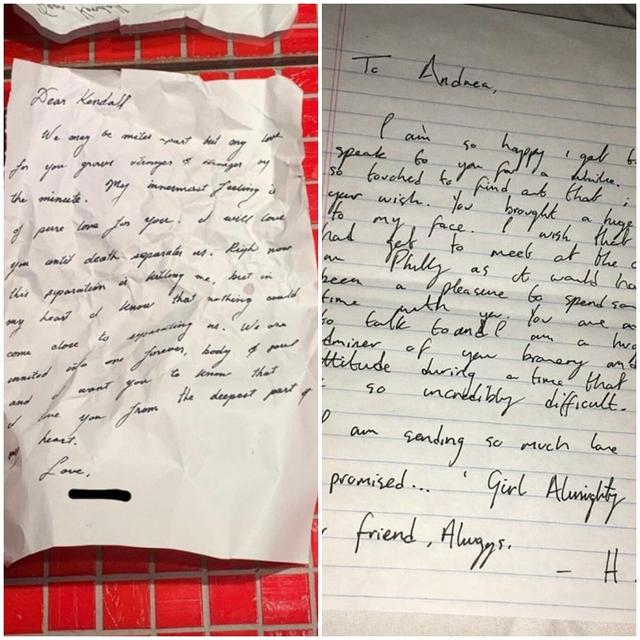 Dear Kendall
We may be miles apart but my love
for you grows stronger & stronger by
the minute. My innermost feeling is
of pure love for you. I will love
you until death separates us. Right now
this separation is killing me, but in
my heart I know that nothing could
come close to separating us. We are
united into one forever, body & soul
and I want you to know that
I love you from the deepest part of
my heart.
Love,
To Andrea,
I am so happy i got to
speak to you for a while.
so touched to find out that i
your wish. You brought a huge
to my face. I wish that
had get to meet at the
in Philly as it would ha
been a pleasure to spend so
time with you. You are
to talk to and I am a hug
dmirer of your bravery and
ttitude during a time that
so incredibly difficult.
I am sending so much love
promised... 'Girl Almighty
friend, Always.
- H.